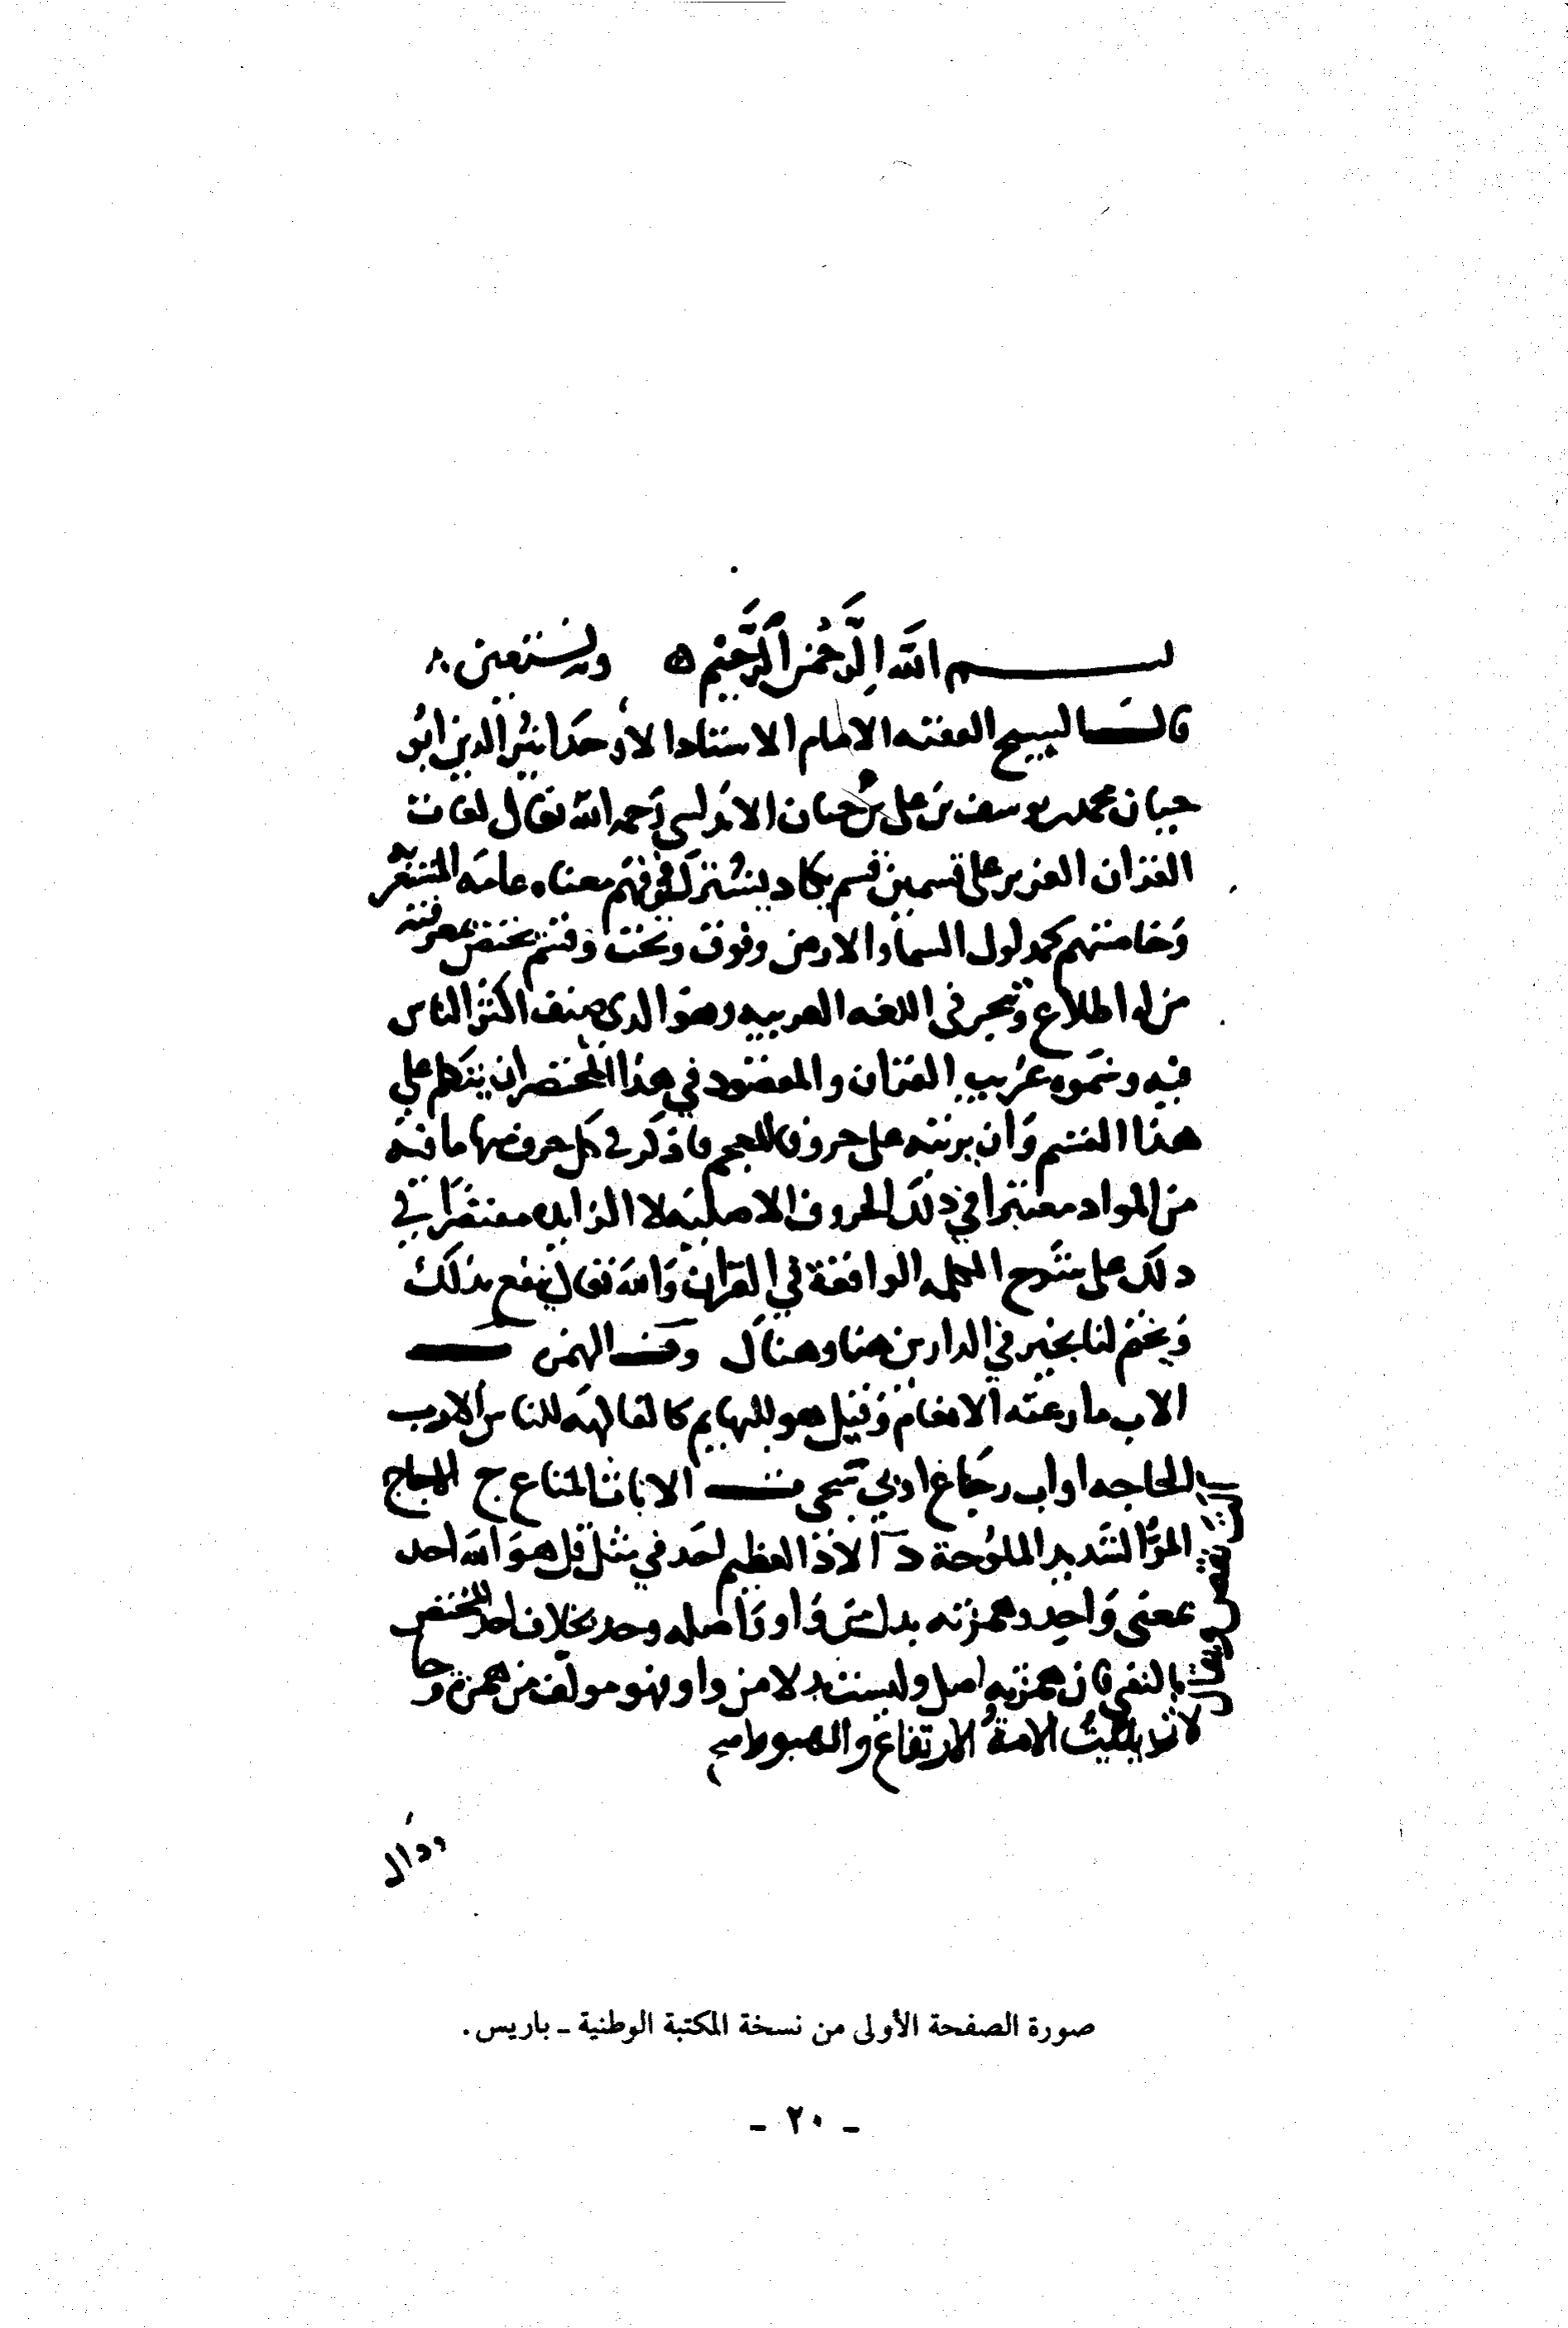 بسم الله الرحمن الرحيم وبه نستعين
قال الشيخ الفقيه الامام الاستاد الاوحد اثير الدين ابو
حيان محمد بن يوسف بن على بن حيان الاندلسي رحمه الله تعالى لغات
القران العزيز على قسمين قسم يكاد يشترك في فهم معناه عامة المستعربه
وخاصتهم كمدلول السما والارض وفوق وتحت وقسم يختص بمعرفته
من له اطلاع وتبحر فى اللغه العربيه وهو الدى صنف اكثر الناس
فيه وسموه غريب القران والمقصود في هذا المختصر ان يتكلم على
هذا القسم وان يرتبه على حروف المعجم فاذكر في كل حرف منها ما فيه
من المواد معتبرا في ذلك الحروف الاصليه لا الزايده مقتصرا في
دلك على شرح الكلمه الواقعة في القران والله تعالى ينفع بذلك
ويختم لنا بخير في الدارين هنا وهناك حرف الهمزه ب
الاب ما رعته الانعام وقيل هو للبهايم كالفاكهه للناس الارب
الحاجه اواب رجاع اوبي سبحى ث الاثاث المتاع ج الاجاج
المر الشديد الملوحة د آ الاد العظيم احد في مثل قل هو الله احد
بمعنى واحد وهمزته بدل من واو واصله وحد بخلاف احد المختص
بالنفى فان همزته اصل وليست بدلا من واو فهو مولف من همزة وحا
الامت الارتفاع والهبوط
ودال
صورة الصفحة الأولى من نسخة المكتبة الوطنية ـ باريس .
ـ ٢٠ ـ